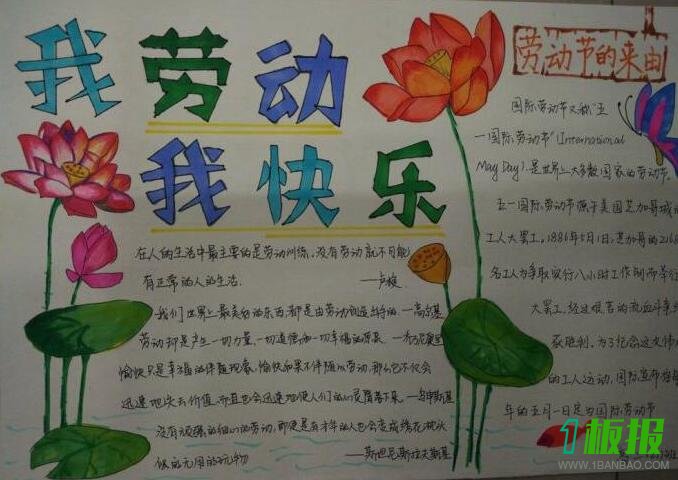 我劳动
我快乐
在人的生活中最主要的是劳动训练。没有劳动就不可能
有正常的人的生活。
——卢梭
我们世界上最美好的东西都是由劳动创造出来的 —高尔基
劳动却是产生一切力量、一切道德和一切幸福的
愉快只是幸福的伴随现象，愉快如果不伴随以劳动，那么它不仅会
迅速地失去价值，而且也会迅速地使人们的心灵
没有顽强的细心的劳动，即使是有才华的人也会变成绣花枕头
似的无用的玩物 —斯坦尼斯拉夫斯基
劳动节的来由
国际劳动节又称"五
一国际劳动节"（International
May Day），是世界上大多数国家的劳动节。
五一国际劳动节源于美国芝加哥城的
工人大罢工。1886年5月1日，芝加哥的216
名工人为争取实行八小时工作制而举行
大罢工，经过艰苦的流血斗争终
获胜利。为了纪念这次伟大
的工人运动，国际
年的五月一日定为国际劳动节
1板报
WWW.1BANBAO.COM